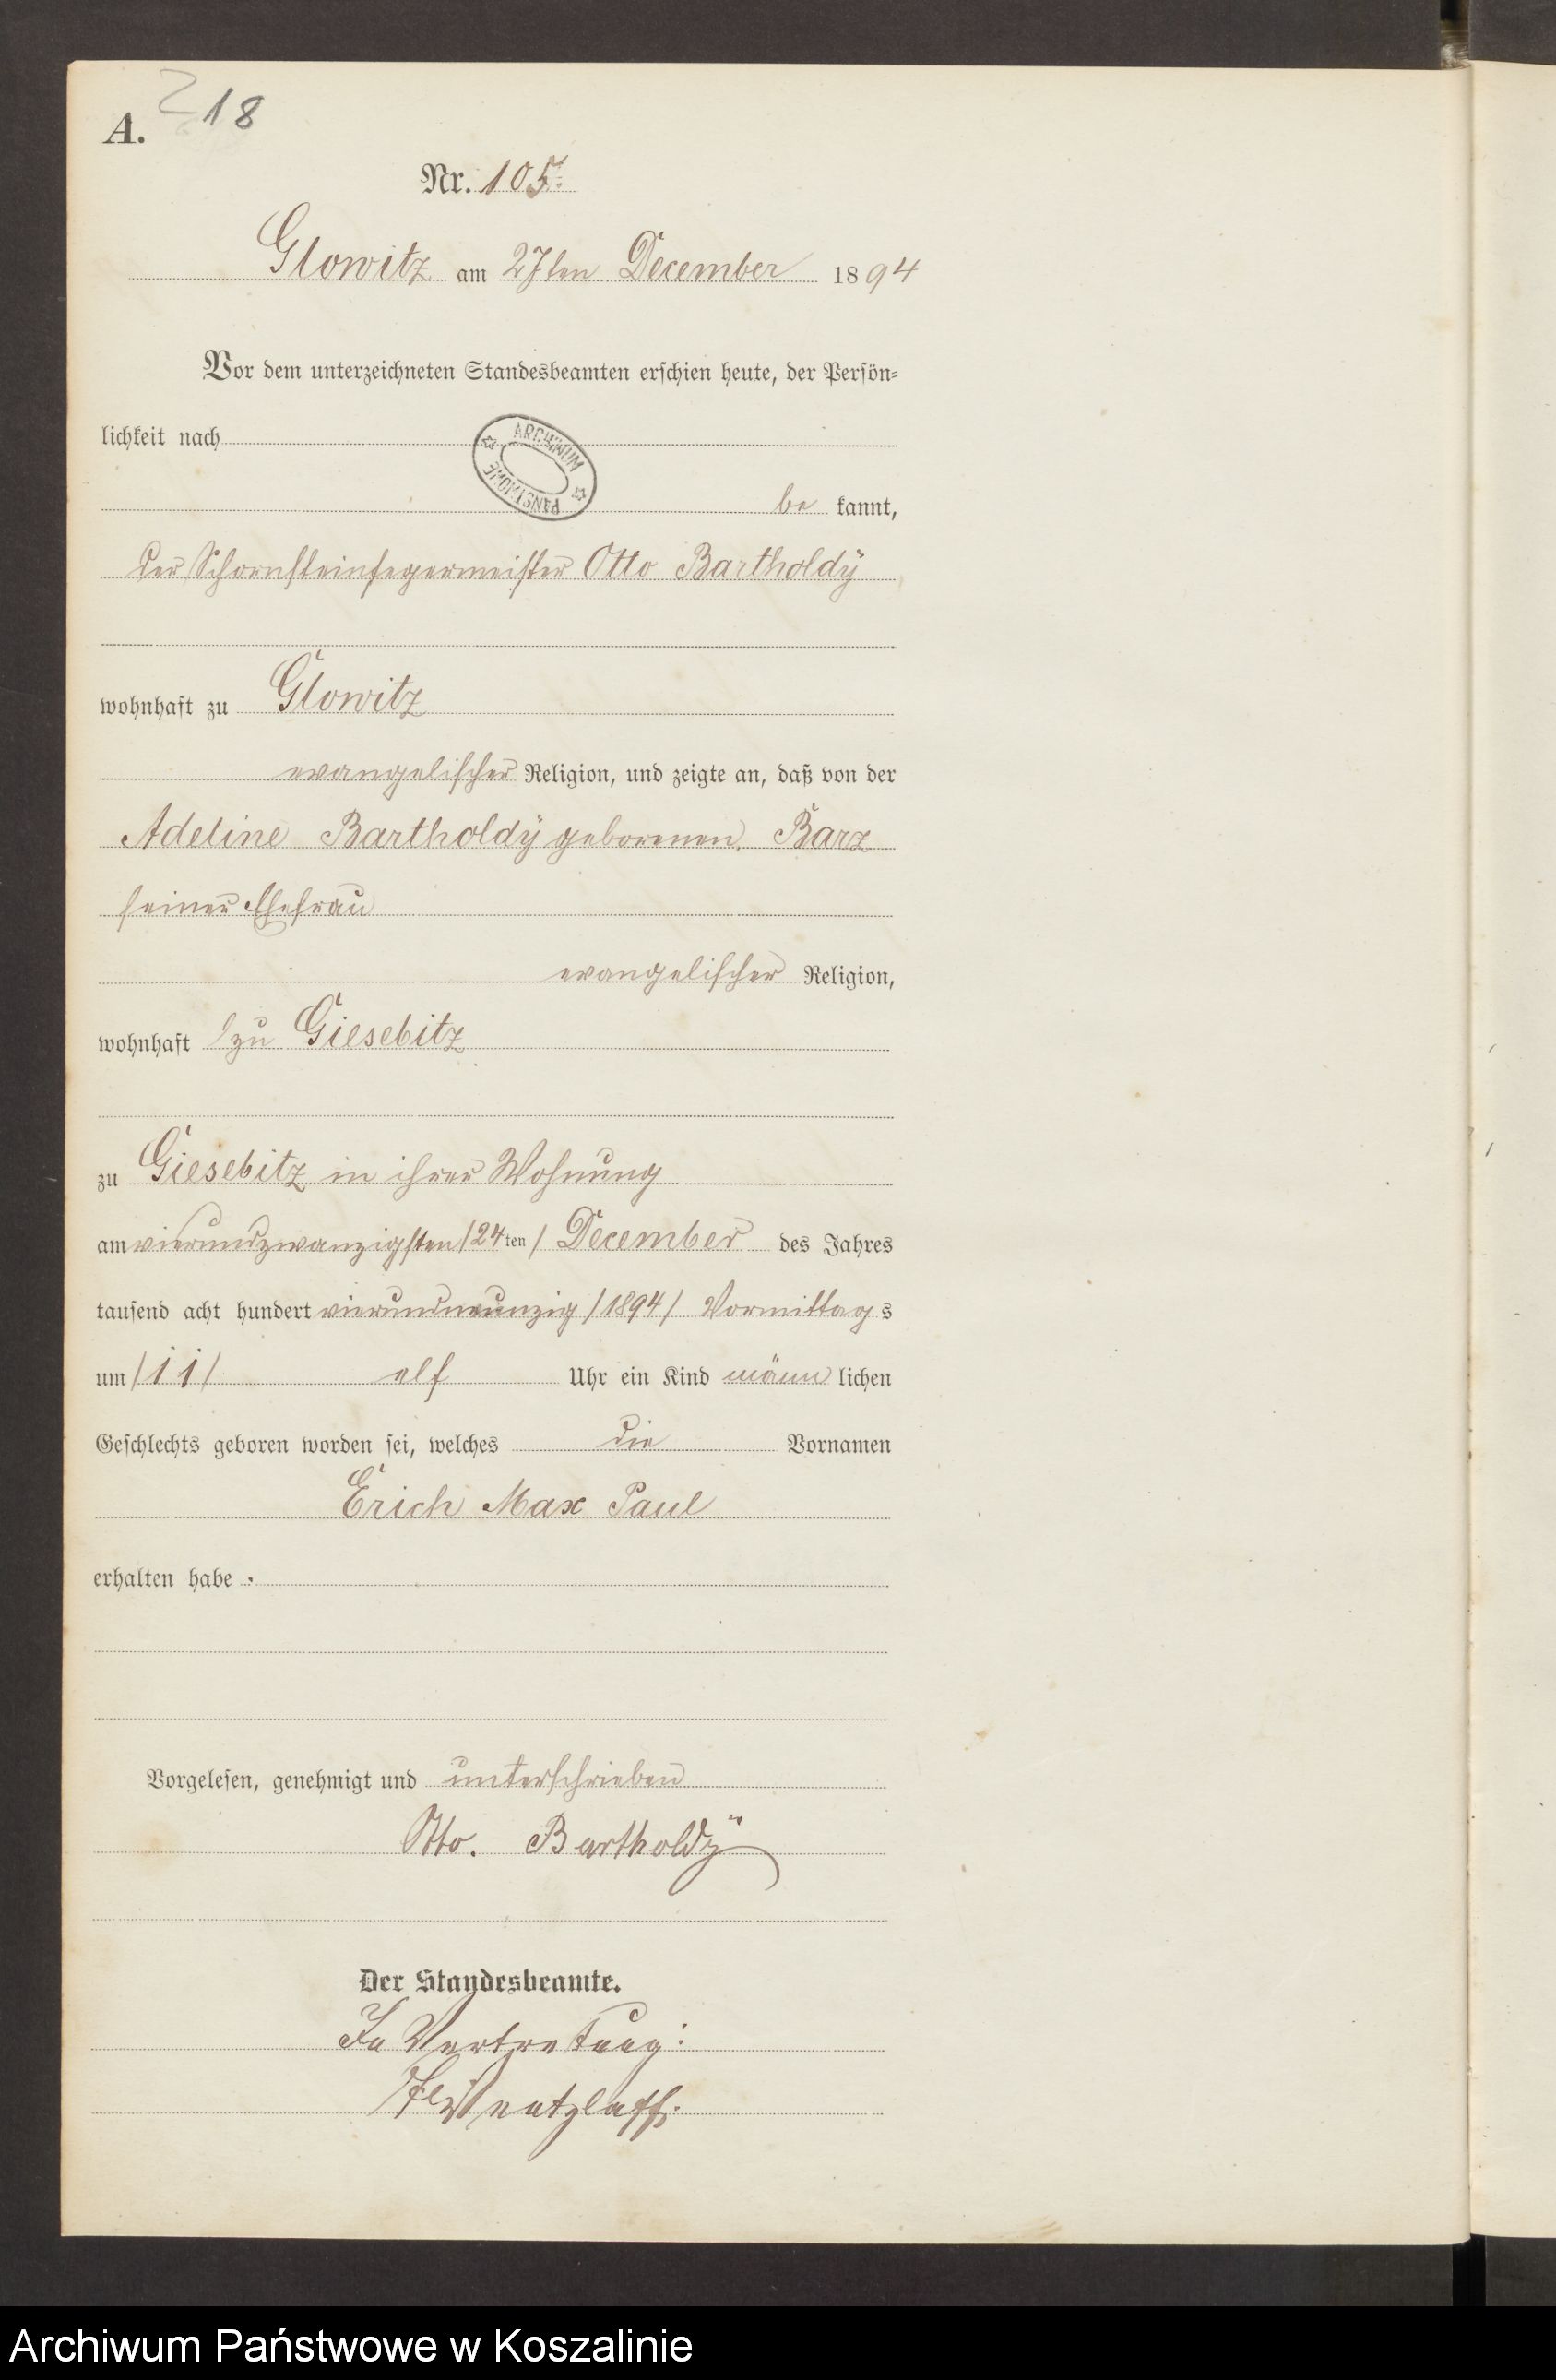 A.
18
Nr. 105.
Glowitz am 27ten December 1894
Vor dem unterzeichneten Standesbeamten erschien heute, der Persön-
lichkeit nach
ARCHIWUM PAŃSTWOWE
be kannt,
der Schornsteinfegermeister Otto Bartholdÿ
wohnhaft zu Glowitz
evangelischer Religion, und zeigte an, daß von der
Adeline Bartholdÿ geborenen Barz
seiner Ehefrau
evangelischer Religion,
wohnhaft zu Giesebitz
zu Giesebitz in ihrer Wohnung
am vierundzwanzigsten /24ten/ December des Jahres
tausend acht hundert vierundneunzig /1894/ Vormittag s
um /11/ elf Uhr ein Kind männ lichen
Geschlechts geboren worden sei, welches die Vornamen
Erich Max Paul
erhalten habe .
Vorgelesen, genehmigt und unterschrieben
Otto. Bartholdÿ
Der Standesbeamte.
In Vertretung:
Archiwum Państwowe w Koszalinie